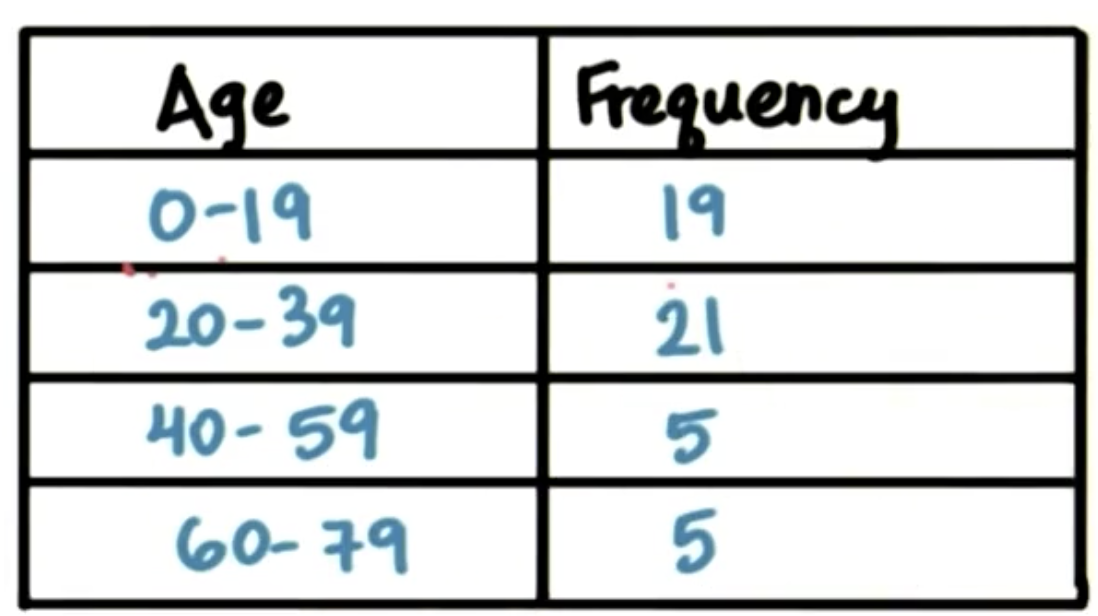 Age Frequency
0-19 19
20-39 21
40-59 5
60-79 5